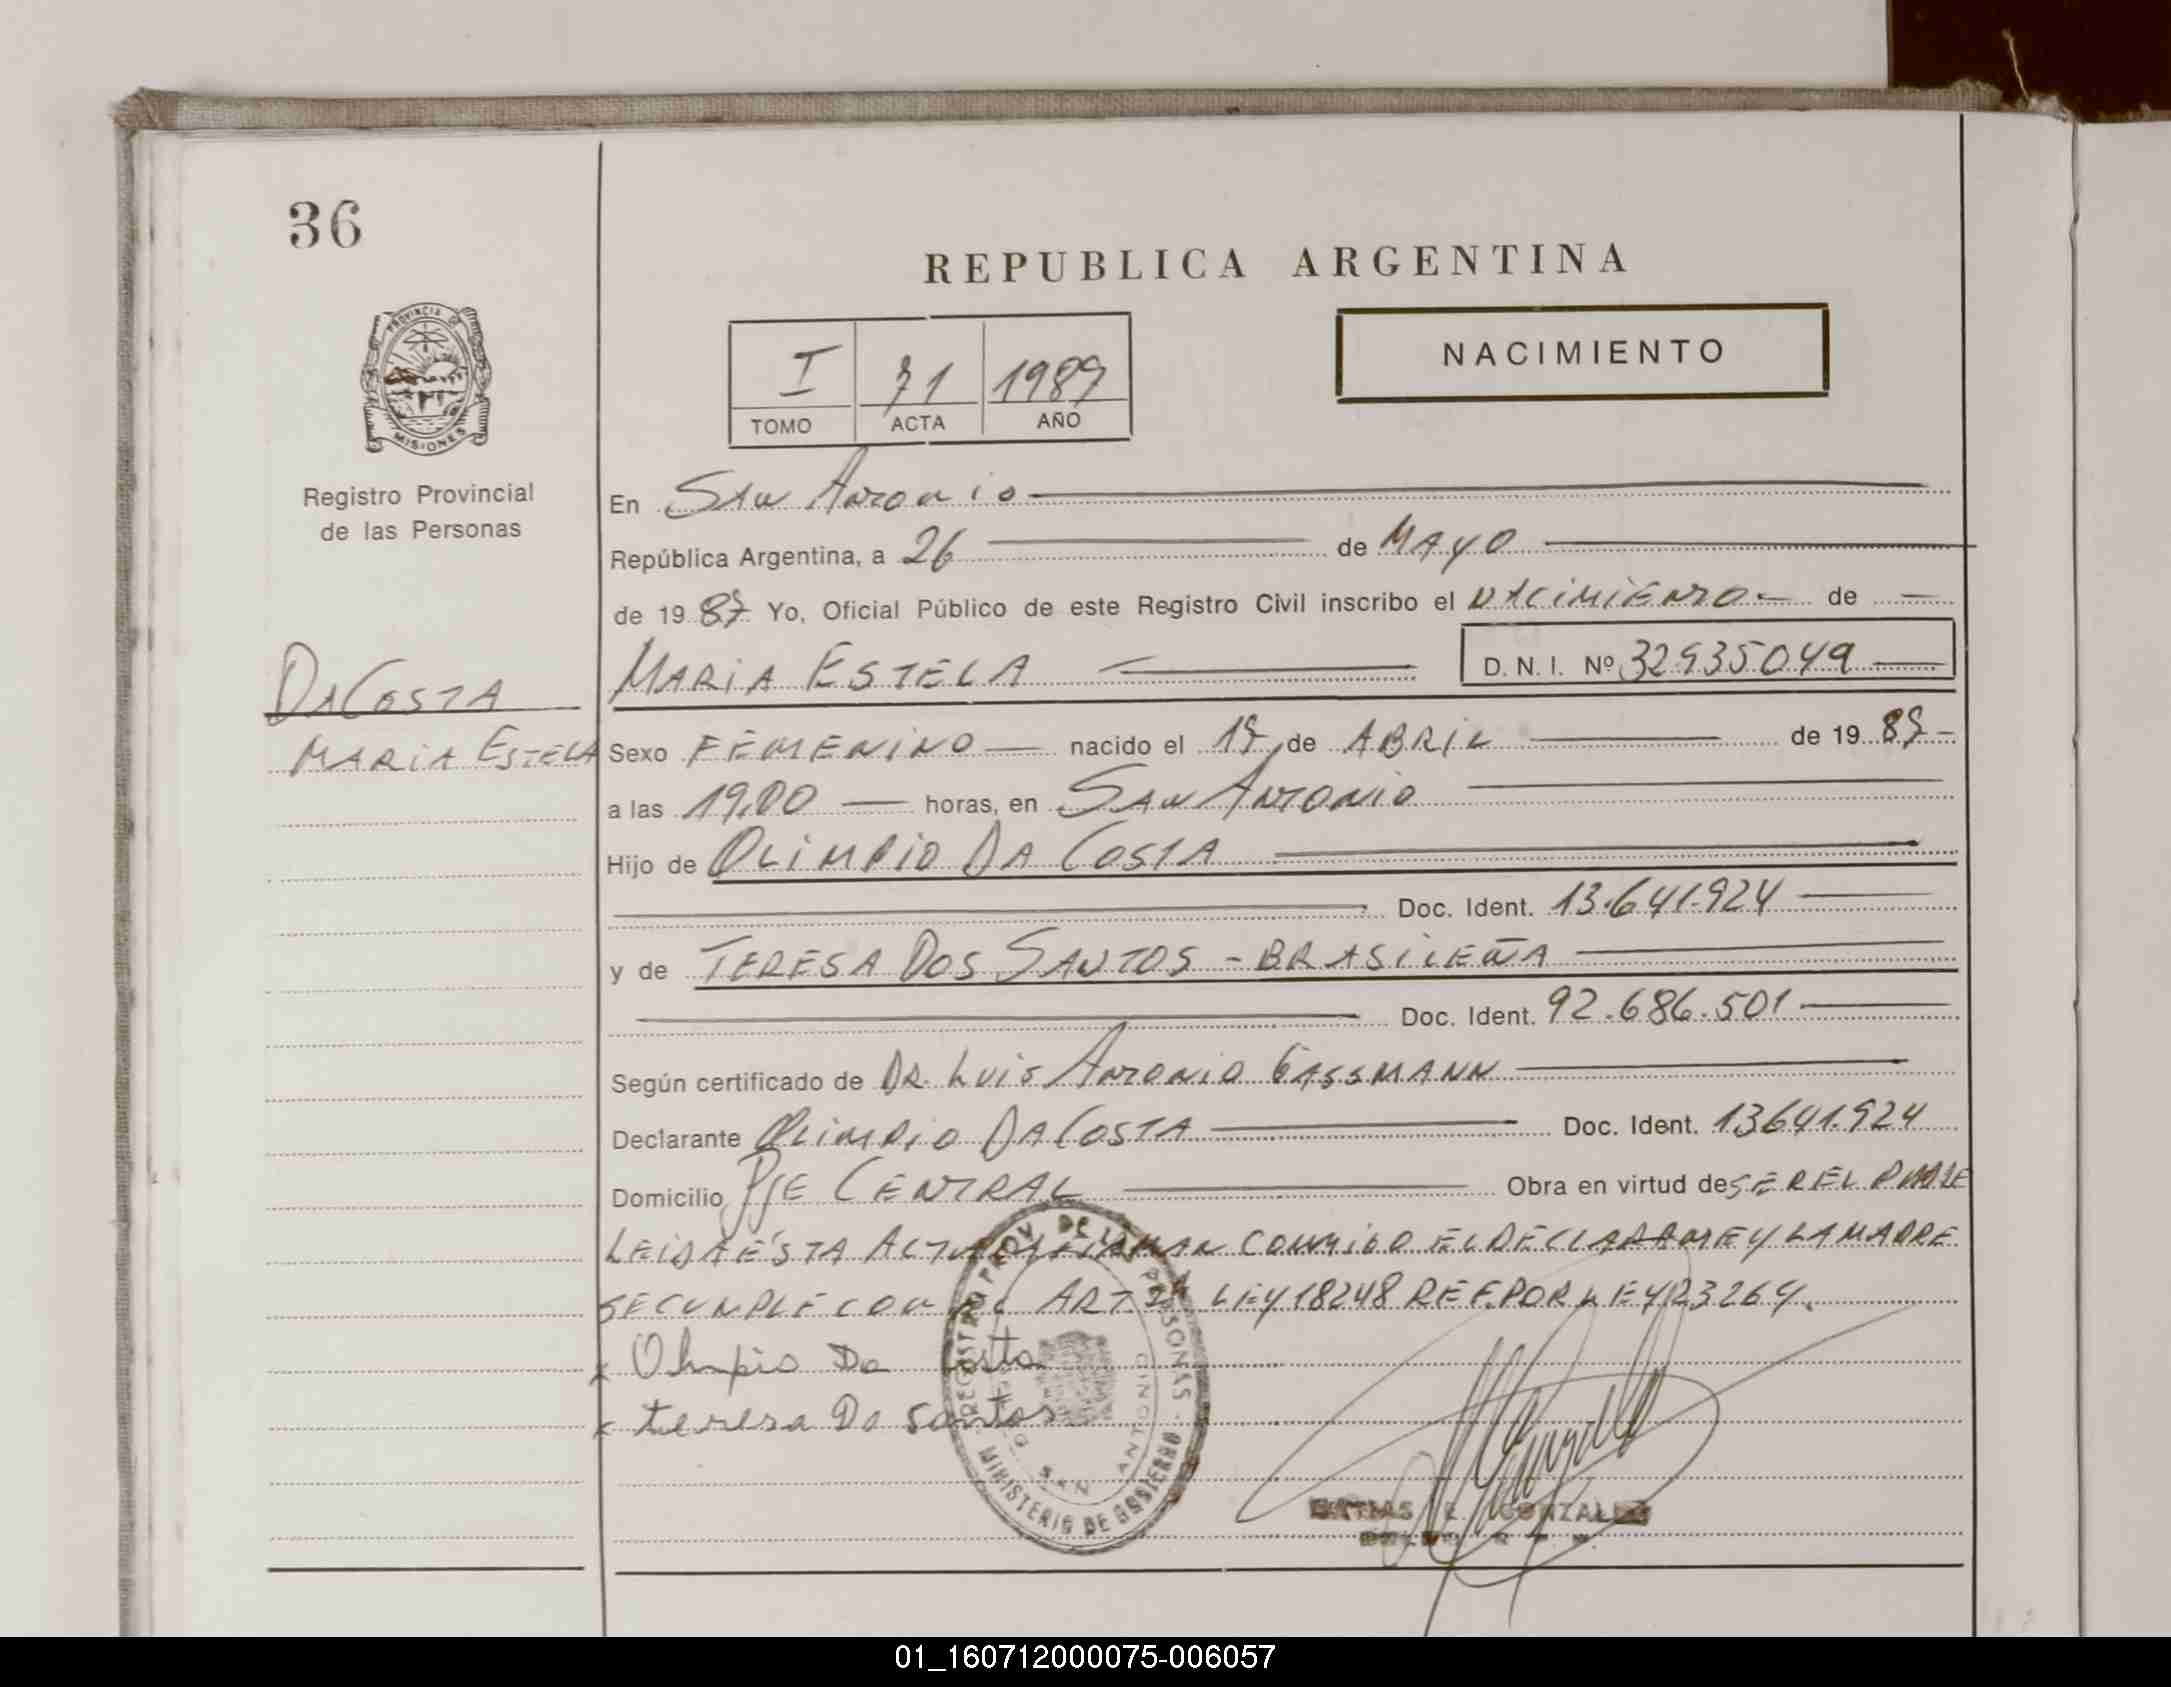 36
REPUBLICA ARGENTINA
PROVINCIA DE
MISIONES
I 71 1987
TOMO ACTA AÑO
NACIMIENTO
Registro Provincial
de las Personas
En San Antonio
República Argentina, a 26 de MAYO
de 19 87 Yo, Oficial Público de este Registro Civil inscribo el NACIMIENTO de
DACOSTA
MARIA ESTELA
MARIA ESTELA D. N. I. Nº 32935049
Sexo FEMENINO nacido el 17 de ABRIL de 19 87
a las 19,00 horas, en SAN ANTONIO
Hijo de OLIMPIO DA COSTA
Doc. Ident. 13.641.924
y de TERESA DOS SANTOS - BRASILEÑA
Doc. Ident. 92.686.501
Según certificado de DR. LUIS ANTONIO GASSMANN
Declarante OLIMPIO DA COSTA Doc. Ident. 13641.924
Domicilio PJE CENTRAL Obra en virtud de SER EL PADRE
LEIDA ÉSTA ACTA FIRMAN CONMIGO EL DECLARANTE Y LA MADRE
SE CUMPLE CON EL ART LEY 18248 REF. POR LEY 23264.
x Olimpio Da Costa
x teresa Do santos
REGISTRO PROV. DE LAS PERSONAS
MINISTERIO DE GOBIERNO
SAN ANTONIO
MATIAS E. GONZALEZ
01_160712000075-006057